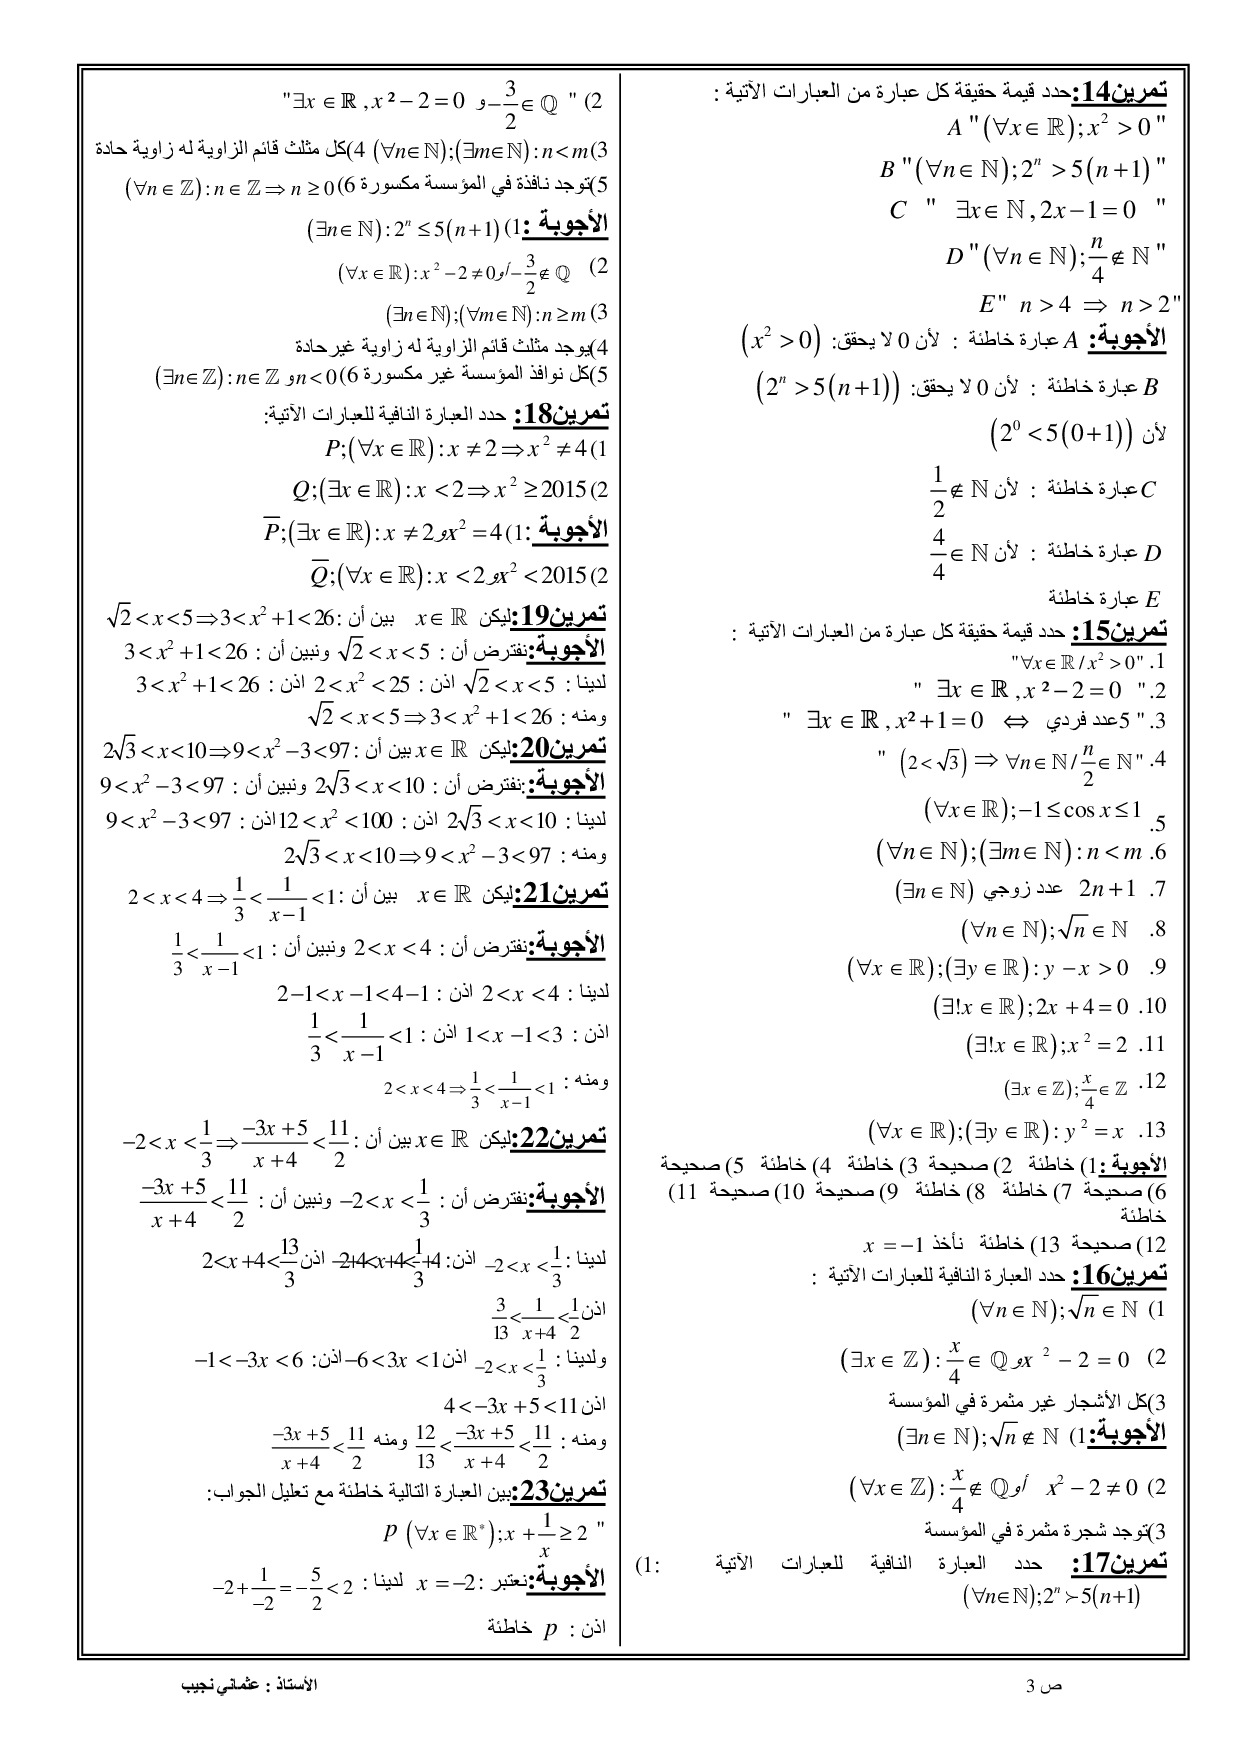 تمرين14: حدد قيمة حقيقة كل عبارة من العبارات الآتية :
A "(∀x∈ℝ); x² > 0 "
B "(∀n∈ℕ); 2ⁿ > 5(n+1) "
C " ∃x∈ℕ, 2x−1=0 "
D "(∀n∈ℕ); n/4 ∉ ℕ "
E" n>4 ⇒ n>2"
الأجوبة: A عبارة خاطئة : لأن 0 لا يحقق: (x² > 0)
B عبارة خاطئة : لأن 0 لا يحقق: (2ⁿ > 5(n+1))
لأن (2⁰ < 5(0+1))
C عبارة خاطئة : لأن 1/2 ∉ ℕ
D عبارة خاطئة : لأن 4/4 ∈ ℕ
E عبارة خاطئة
تمرين15: حدد قيمة حقيقة كل عبارة من العبارات الآتية :
1. "∀x∈ℝ / x² > 0"
2. " ∃x∈ℝ, x²−2=0 "
3. " 5عدد فردي ⇔ ∃x∈ℝ, x²+1=0 "
4. " (2<√3) ⇒ ∀n∈ℕ / n/2 ∈ ℕ"
5. (∀x∈ℝ); −1 ≤ cos x ≤ 1
6. (∀n∈ℕ);(∃m∈ℕ): n < m
7. 2n+1 عدد زوجي (∃n∈ℕ)
8. (∀n∈ℕ); √n ∈ ℕ
9. (∀x∈ℝ);(∃y∈ℝ): y−x > 0
10. (∃!x∈ℝ); 2x+4=0
11. (∃!x∈ℝ); x²=2
12. (∃x∈ℤ); x/4 ∈ ℤ
13. (∀x∈ℝ);(∃y∈ℝ): y²=x
الأجوبة :1) خاطئة 2) صحيحة 3) خاطئة 4) خاطئة 5) صحيحة
6) صحيحة 7) خاطئة 8) خاطئة 9) صحيحة 10) صحيحة 11)
خاطئة
12) صحيحة 13) خاطئة نأخذ x = −1
تمرين16: حدد العبارة النافية للعبارات الآتية :
1) (∀n∈ℕ); √n ∈ ℕ
2) (∃x∈ℤ): x/4 ∈ ℚ و x²−2=0
3)كل الأشجار غير مثمرة في المؤسسة
الأجوبة:1) (∃n∈ℕ); √n ∉ ℕ
2) (∀x∈ℤ): x/4 ∉ ℚ أو x²−2≠0
3)توجد شجرة مثمرة في المؤسسة
تمرين17: حدد العبارة النافية للعبارات الآتية :1)
(∀n∈ℕ); 2ⁿ ≻ 5(n+1)
2) " −3/2 ∈ ℚ و ∃x∈ℝ, x²−2=0"
3) (∀n∈ℕ);(∃m∈ℕ): n<m 4)كل مثلث قائم الزاوية له زاوية حادة
5)توجد نافذة في المؤسسة مكسورة 6) (∀n∈ℤ): n∈ℤ ⇒ n≥0
الأجوبة :1) (∃n∈ℕ): 2ⁿ ≤ 5(n+1)
2) (∀x∈ℝ): x²−2≠0 أو −3/2 ∉ ℚ
3) (∃n∈ℕ);(∀m∈ℕ): n≥m
4)يوجد مثلث قائم الزاوية له زاوية غيرحادة
5)كل نوافذ المؤسسة غير مكسورة 6) (∃n∈ℤ): n∈ℤ و n<0
تمرين18: حدد العبارة النافية للعبارات الآتية:
1) P;(∀x∈ℝ): x≠2 ⇒ x²≠4
2) Q;(∃x∈ℝ): x<2 ⇒ x²≥2015
الأجوبة :1) P̅;(∃x∈ℝ): x≠2 و x²=4
2) Q̅;(∀x∈ℝ): x<2 و x²<2015
تمرين19:ليكن x∈ℝ بين أن : √2<x<5 ⇒ 3<x²+1<26
الأجوبة:نفترض أن : √2<x<5 ونبين أن : 3<x²+1<26
لدينا : √2<x<5 اذن : 2<x²<25 اذن : 3<x²+1<26
ومنه : √2<x<5 ⇒ 3<x²+1<26
تمرين20:ليكن x∈ℝ بين أن : 2√3<x<10 ⇒ 9<x²−3<97
الأجوبة:نفترض أن : 2√3<x<10 ونبين أن : 9<x²−3<97
لدينا : 2√3<x<10 اذن : 12<x²<100 اذن : 9<x²−3<97
ومنه : 2√3<x<10 ⇒ 9<x²−3<97
تمرين21:ليكن x∈ℝ بين أن : 2<x<4 ⇒ 1/3 < 1/(x−1) < 1
الأجوبة:نفترض أن : 2<x<4 ونبين أن : 1/3 < 1/(x−1) < 1
لدينا : 2<x<4 اذن : 2−1<x−1<4−1
اذن : 1<x−1<3 اذن : 1/3 < 1/(x−1) < 1
ومنه : 2<x<4 ⇒ 1/3 < 1/(x−1) < 1
تمرين22:ليكن x∈ℝ بين أن : −2<x<1/3 ⇒ (−3x+5)/(x+4) < 11/2
الأجوبة:نفترض أن : −2<x<1/3 ونبين أن : (−3x+5)/(x+4) < 11/2
لدينا : −2<x<1/3 اذن: −2+4<x+4<1/3+4 اذن 2<x+4<13/3
اذن 3/13 < 1/(x+4) < 1/2
ولدينا : −2<x<1/3 اذن −6<3x<1 اذن: −1<−3x<6
اذن 4<−3x+5<11
ومنه : 12/13 < (−3x+5)/(x+4) < 11/2 ومنه (−3x+5)/(x+4) < 11/2
تمرين23:بين العبارة التالية خاطئة مع تعليل الجواب:
p (∀x∈ℝ*); x + 1/x ≥ 2 "
الأجوبة:نعتبر : x = −2 لدينا : −2 + 1/−2 = −5/2 < 2
اذن : p خاطئة
ص 3
الأستاذ : عثماني نجيب